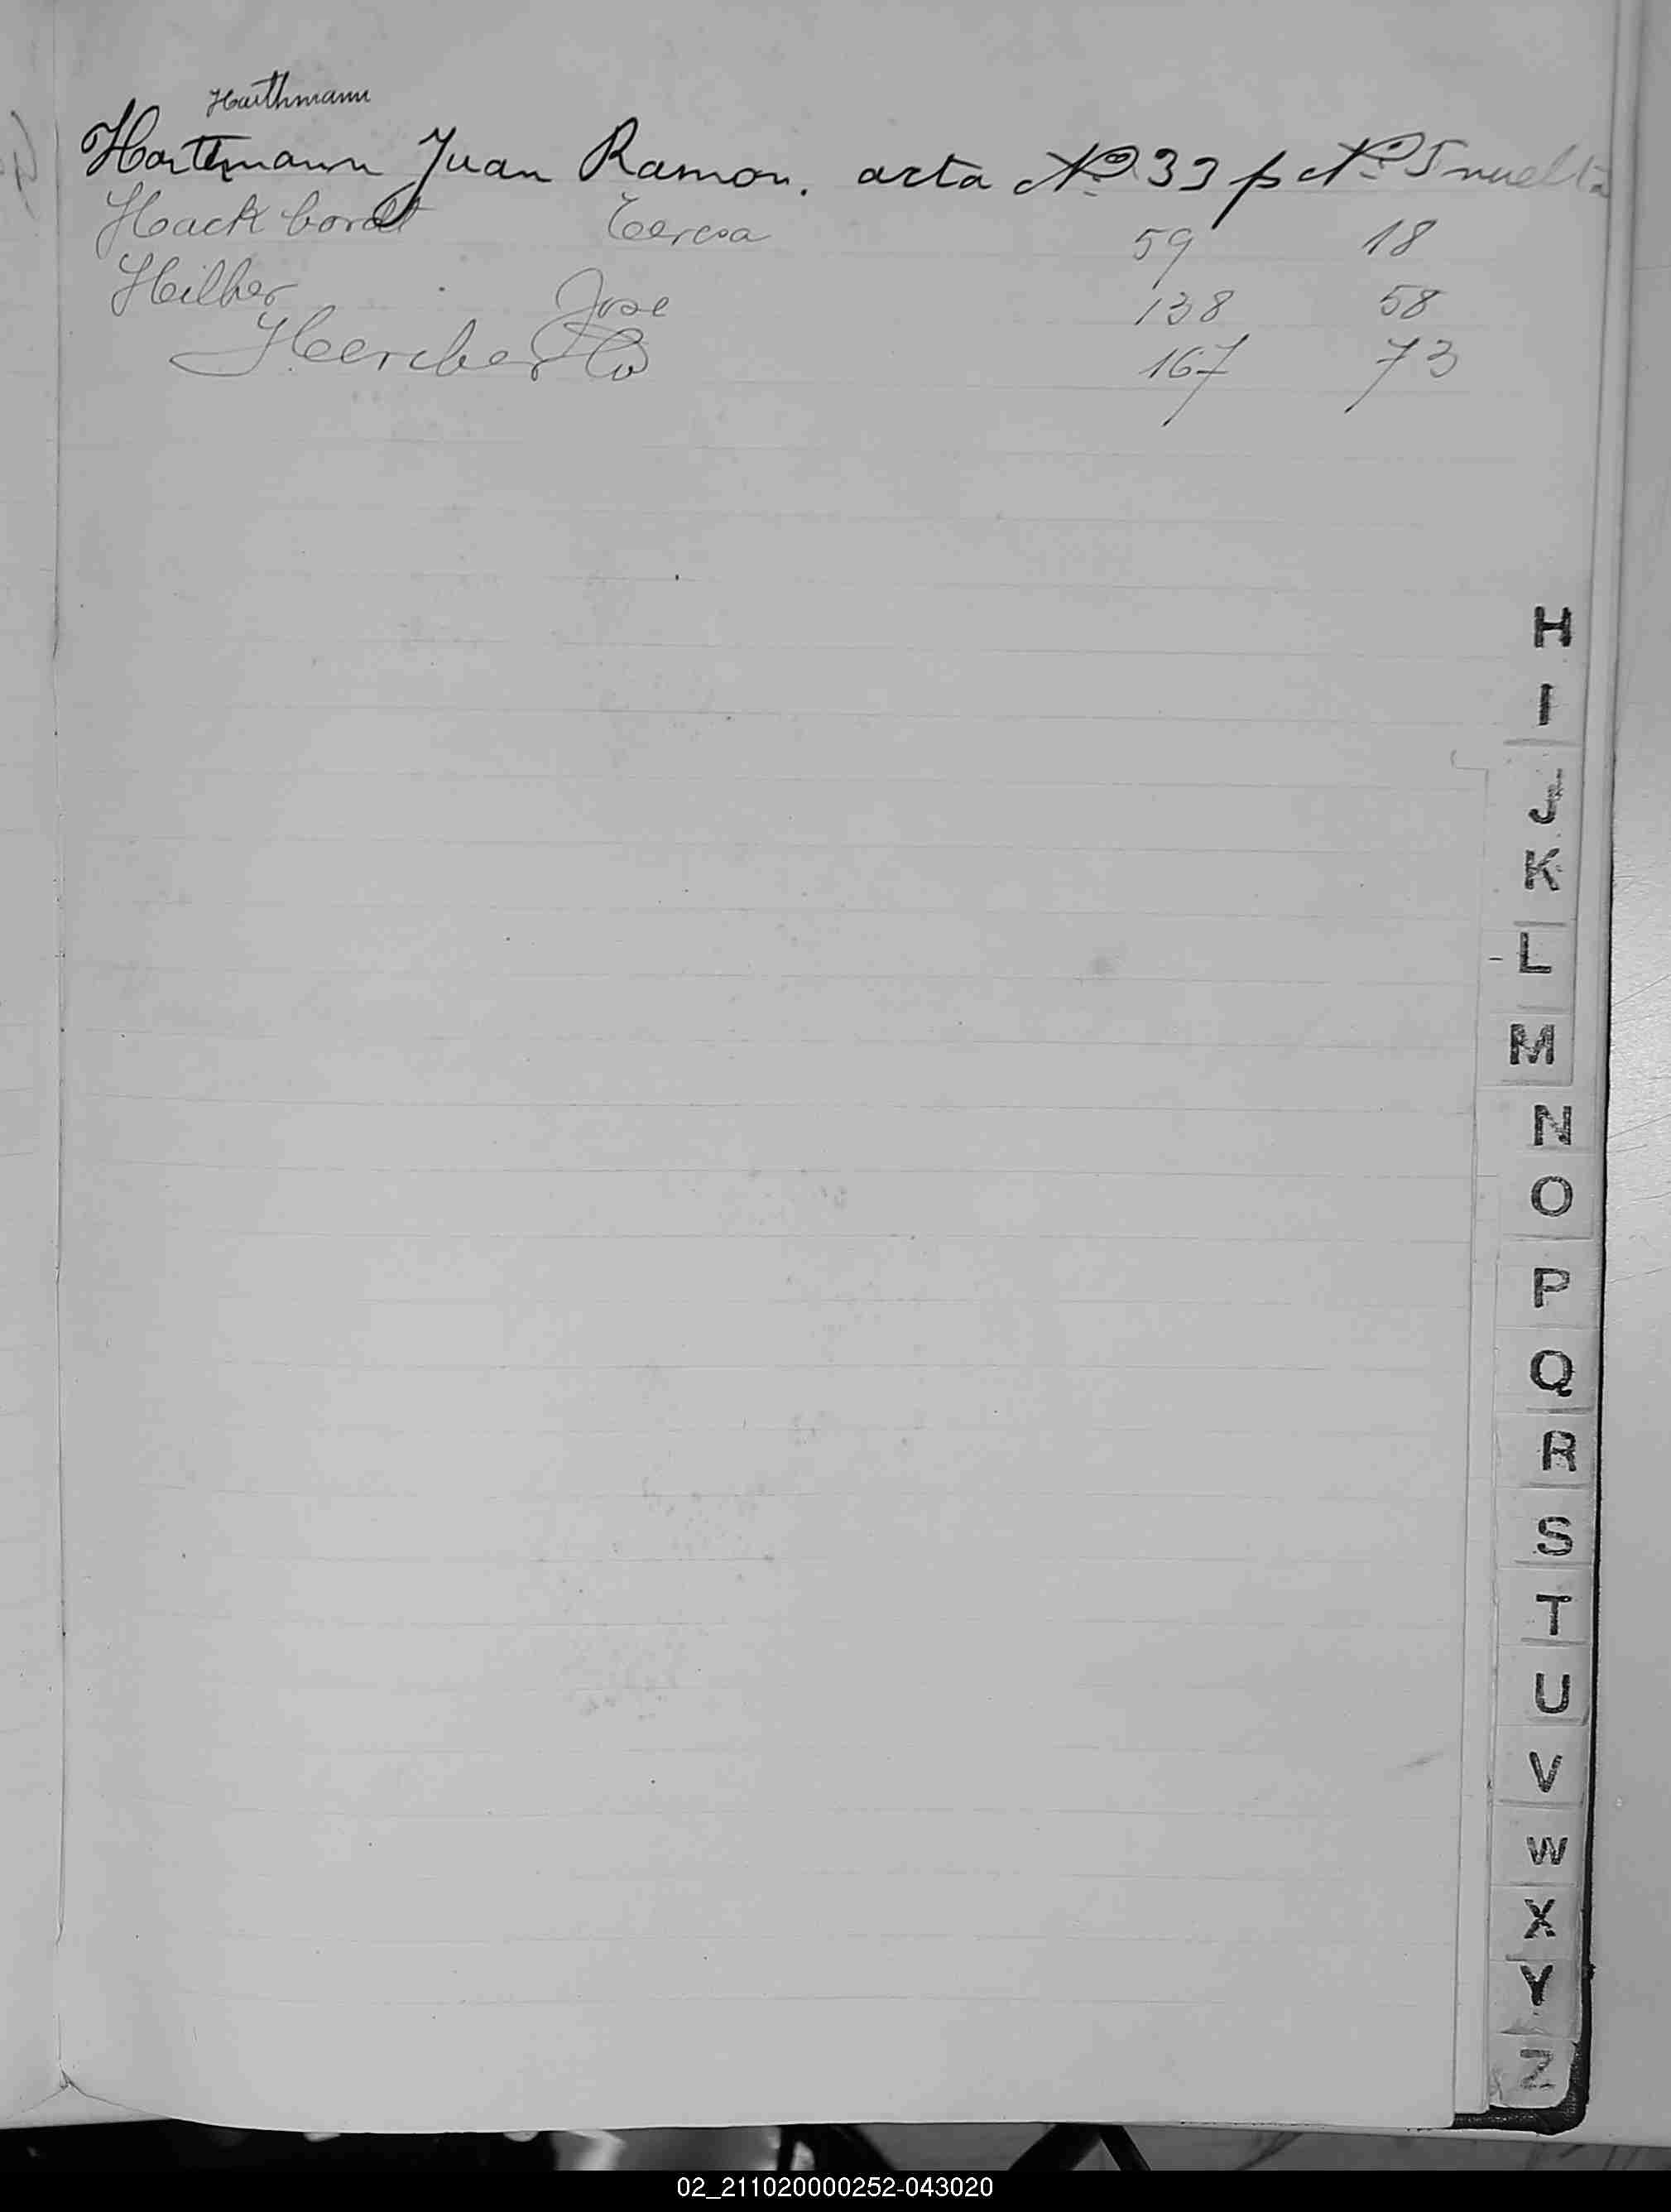 Harthmann
Hartmann Juan Ramon. acta Nº 33 f Nº 5 vuelta
Hackbordt Teresa 59 18
Hilber Jose 138 58
Hercher 167 73
H
I
J
K
L
M
N
O
P
Q
R
S
T
U
V
W
X
Y
Z
02_211020000252-043020